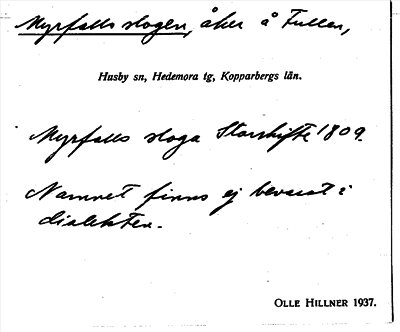 Myrfalls slogen, åker å Fullan,
Husby sn, Hedemora tg, Kopparbergs län.
Myrfalls sloga Storskifte 1809.
Namnet finns ej bevarat i
dialekten.
OLLE HILLNER 1937.